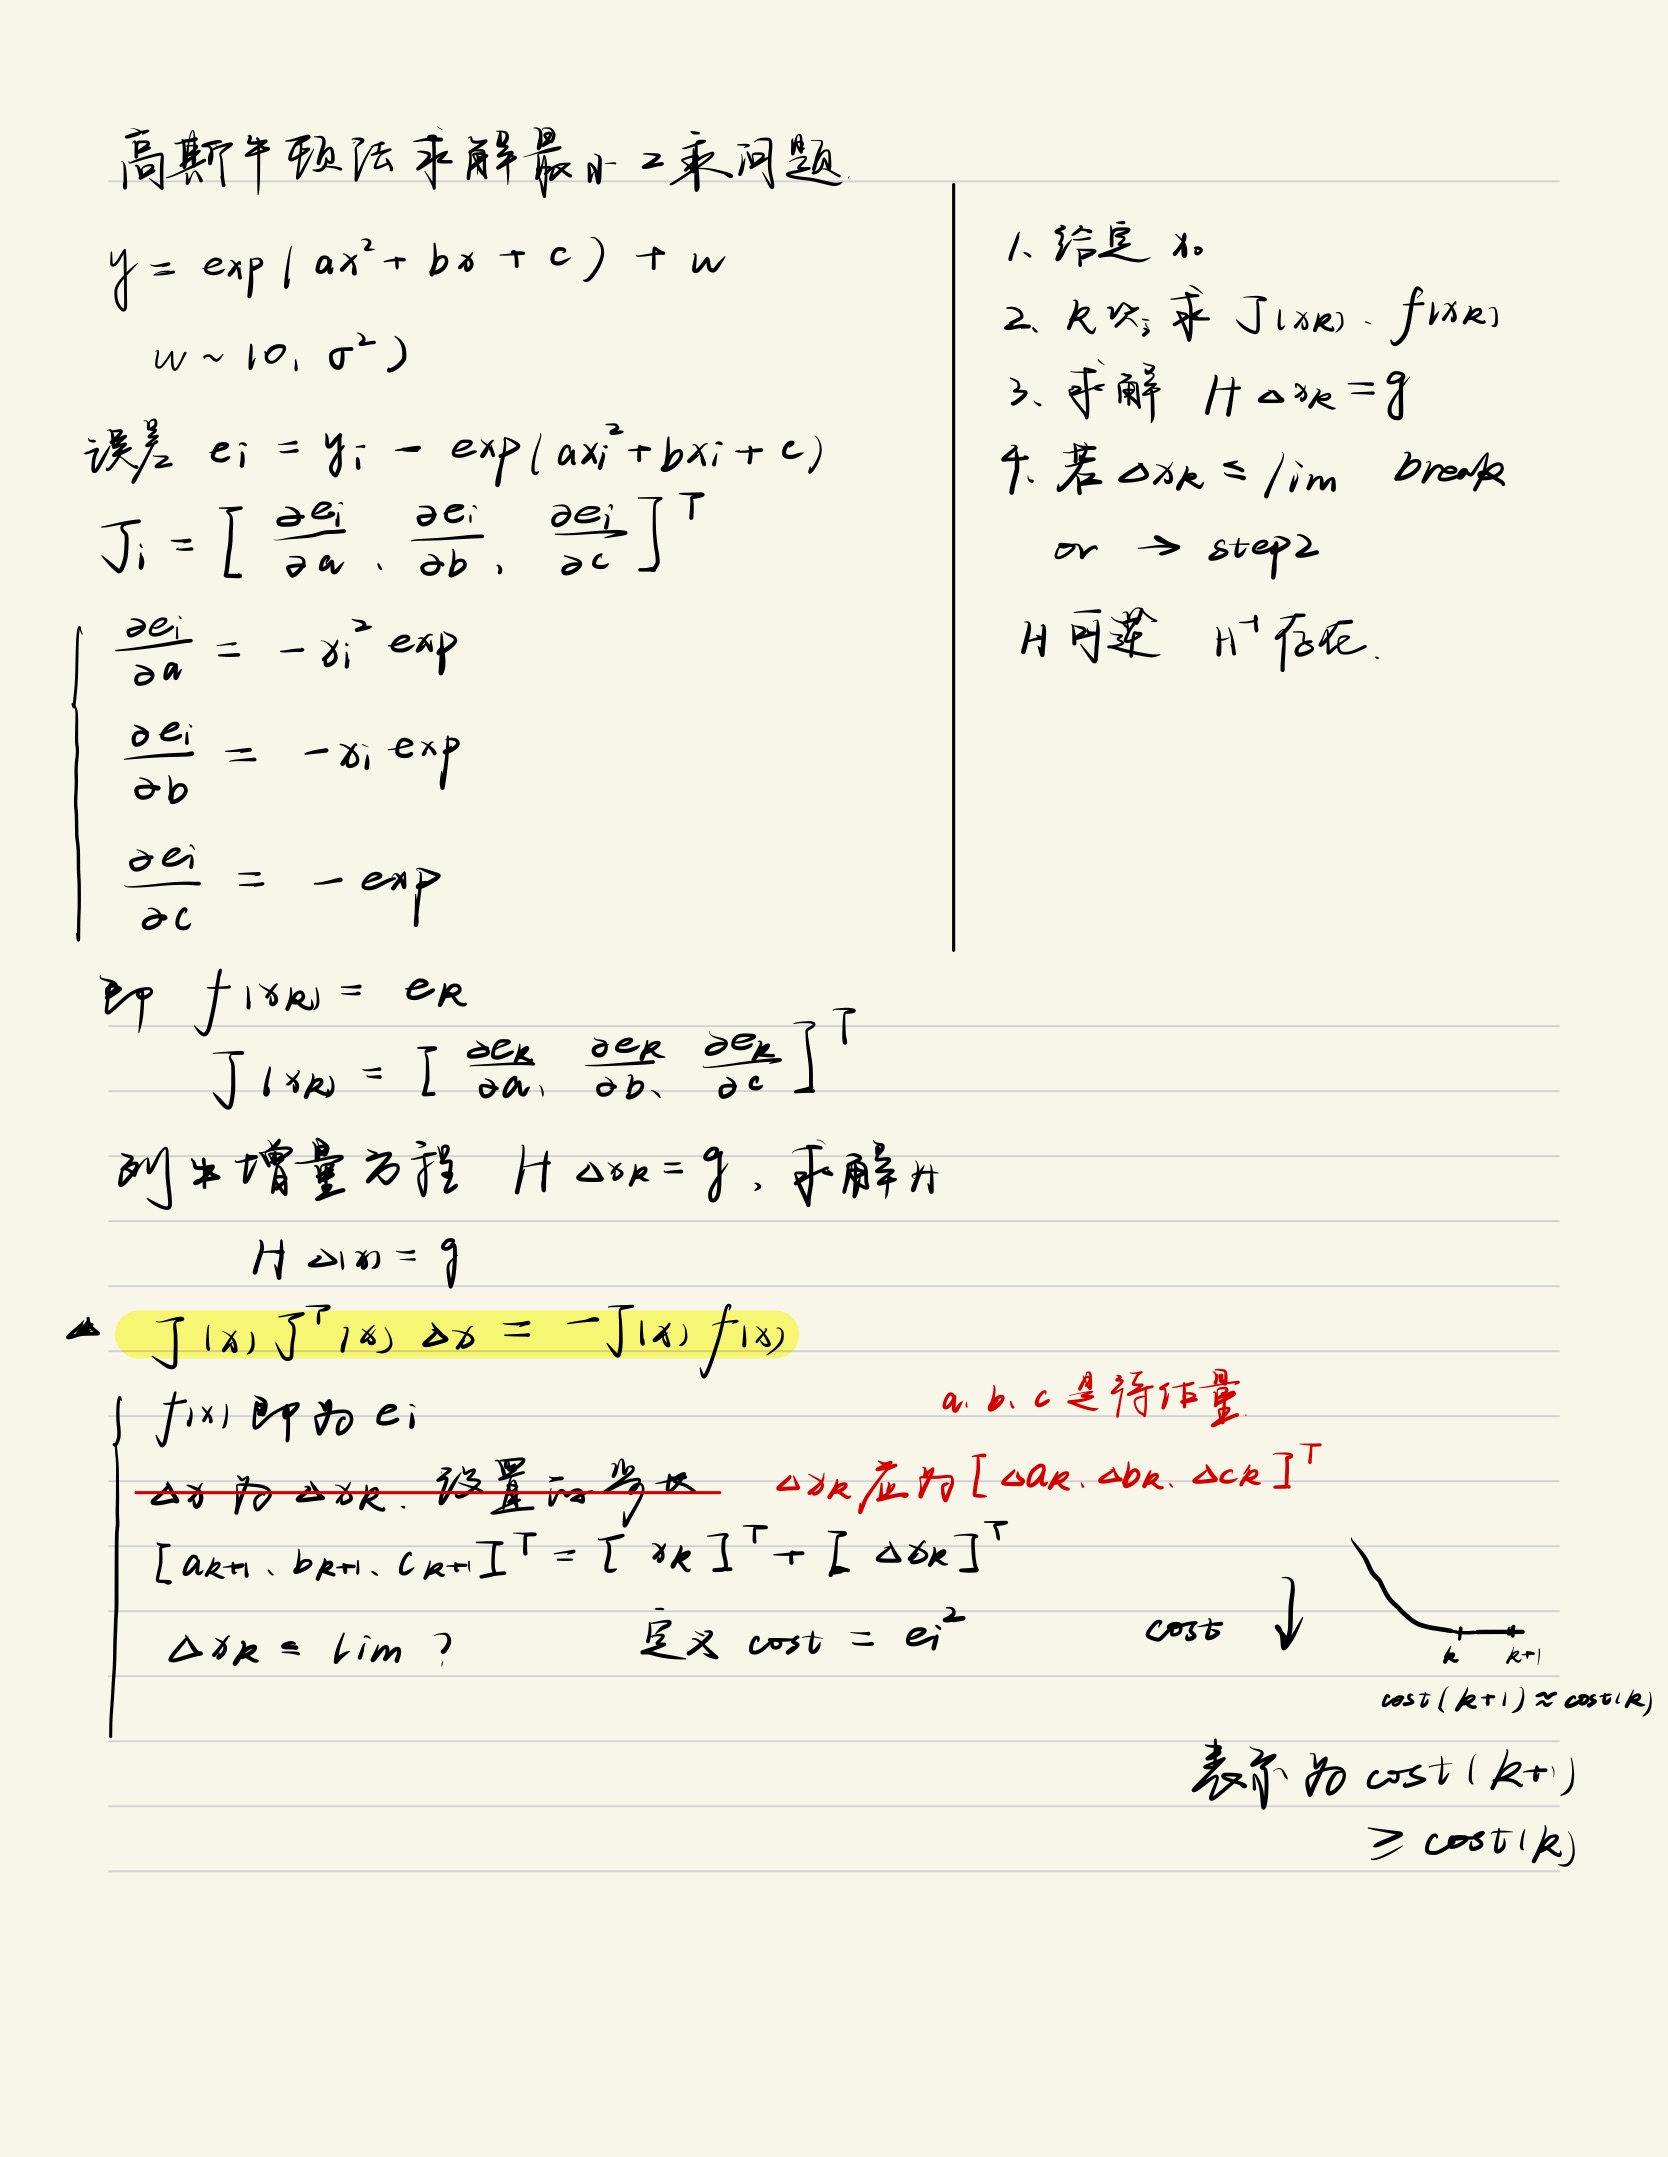 高斯牛顿法求解最小2乘问题.
y = exp(ax² + bx + c) + w
w ~ (0, σ²)
误差 ei = yi - exp(axi² + bxi + c)
Ji = [ ∂ei/∂a 、 ∂ei/∂b 、 ∂ei/∂c ]ᵀ
∂ei/∂a = - xi² exp
∂ei/∂b = - xi exp
∂ei/∂c = - exp
1、给定 x₀
2、k次, 求 J(xk)、f(xk)
3、求解 H Δxk = g
4. 若 Δxk ≤ lim break
or → step2
H可逆 H⁻¹存在.
即 f(xk) = ek
J(xk) = [ ∂ek/∂a、 ∂ek/∂b、 ∂ek/∂c ]ᵀ
列出增量方程 H Δxk = g 、求解H
H Δ(x) = g
J(x) Jᵀ(x) Δx = -J(x) f(x)
f(x) 即为 ei
a、b、c 是待估量.
Δx 为 Δxk. 设置的步长
Δxk 应为 [Δak、Δbk、Δck]ᵀ
[ak+1、bk+1、ck+1]ᵀ = [ xk ]ᵀ + [ Δxk ]ᵀ
Δxk ≤ lim ? 定义 cost = ei²
cost ↓
k k+1
cost(k+1) ≈ cost(k)
表示为 cost(k+1)
≥ cost(k)